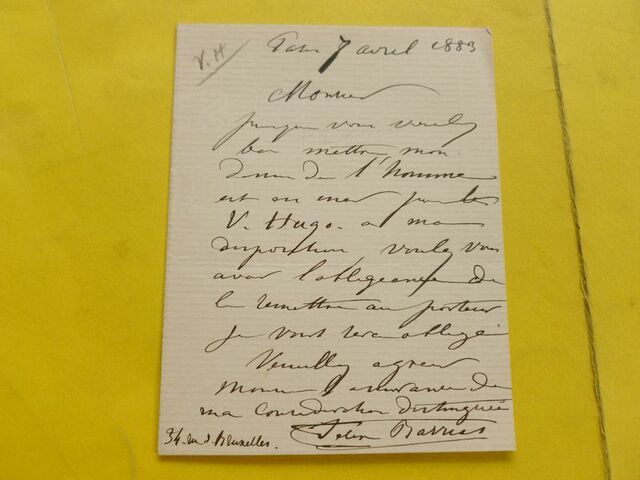 V. H
Paris 7 avril 1883
Monsieur
puisque vous voulez
bien mettre mon
dessin de l'homme
est en mer pour les
V. Hugo. a ma
disposition, voulez vous
avoir l'obligeance de
le remettre au porteur
je vous serai obligé
Veuillez agréer
Monsieur l'assurance de
ma considération distinguée
34. rue d. Bruxelles. Félix Barrias